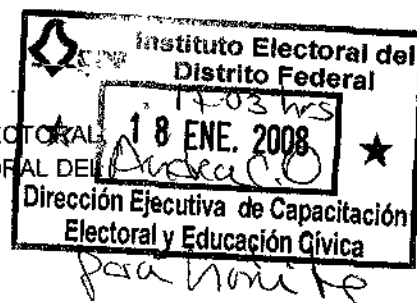 Instituto Electoral del
Distrito Federal
17-03 hrs
ECTORAL 18 ENE. 2008
ORAL DEL Andrea C.O
Dirección Ejecutiva de Capacitación
Electoral y Educación Cívica
para